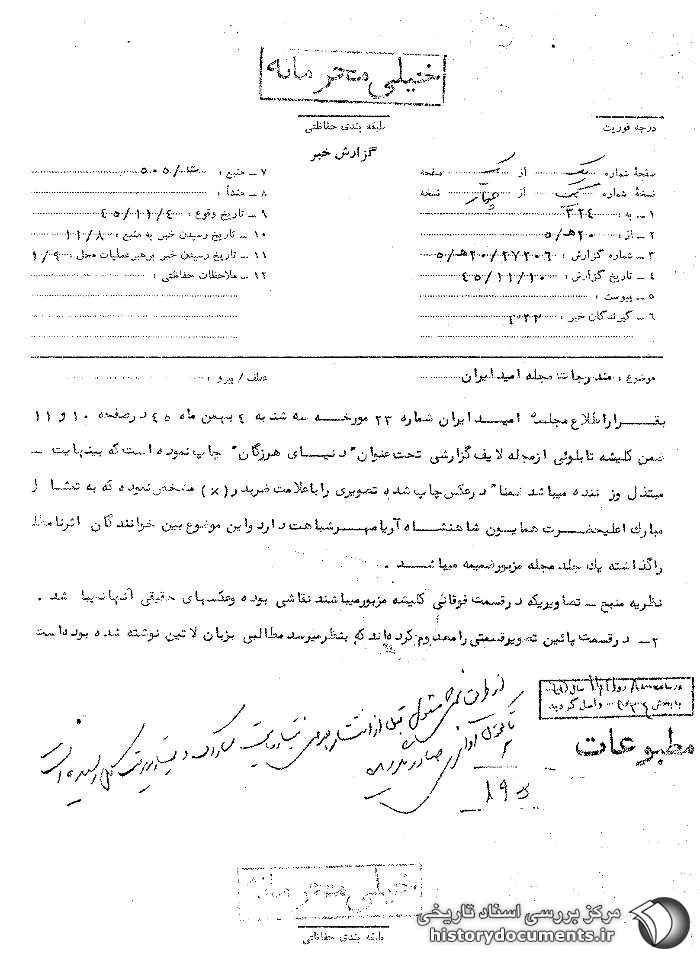 خیلی محرمانه
طبقه بندی حفاظتی
درجه فوریت
گزارش خبر
صفحهٔ شماره یک از یک صفحه
نسخهٔ شماره یک از چهار نسخه
۱ – به : ۳۲۴
۲ – از : ۲۰ه‍/۵
۳ – شماره گزارش : ۲۰/۲۷۲۰۶ه‍/۵
۴ – تاریخ گزارش : ۴۵/۱۱/۱۰
۵ – پیوست :
۶ – گیرندگان خبر :
۷ – منبع : ۵۰۵
۸ – منشأ :
۹ – تاریخ وقوع : ۴۵/۱۱/۴
۱۰ – تاریخ رسیدن خبر به منبع : ۱۱/۸
۱۱ – تاریخ رسیدن خبر برهبر عملیات محل : ۱/۹
۱۲ – ملاحظات حفاظتی :
موضوع : مندرجات مجله امید ایران
عطف / پیرو :
بقرار اطلاع مجله امید ایران شماره ۲۳ مورخه سه شنبه ۴ بهمن ماه ۴۵ در صفحه ۱۰ و ۱۱
ضمن کلیشه تابلوئی از مجله لایف گزارشی تحت عنوان "دنیای هرزگان" چاپ نموده است که بینهایت –
مبتذل و زننده میباشد ضمنا" در عکس چاپ شده تصویری را با علامت ضربدر (×) مشخص نموده که به تمثال
مبارک اعلیحضرت همایون شاهنشاه آریامهر شباهت دارد و این موضوع بین خوانندگان اثر نامطلوب
را گذاشته یک جلد مجله مزبور ضمیمه میباشد .
نظریه منبع – تصاویریکه در قسمت فوقانی کلیشه مزبور میباشند نقاشی بوده و عکسهای حقیقی آنها پیدا شد .
۲– در قسمت پائین تصویر قسمتی را معدوم کرده اند که بنظر میرسد مطالبی بزبان لاتین نوشته شده بوده است
واصل گردید
مطبوعات
خیلی محرمانه
طبقه بندی حفاظتی
مرکز بررسی اسناد تاریخی
historydocuments.ir